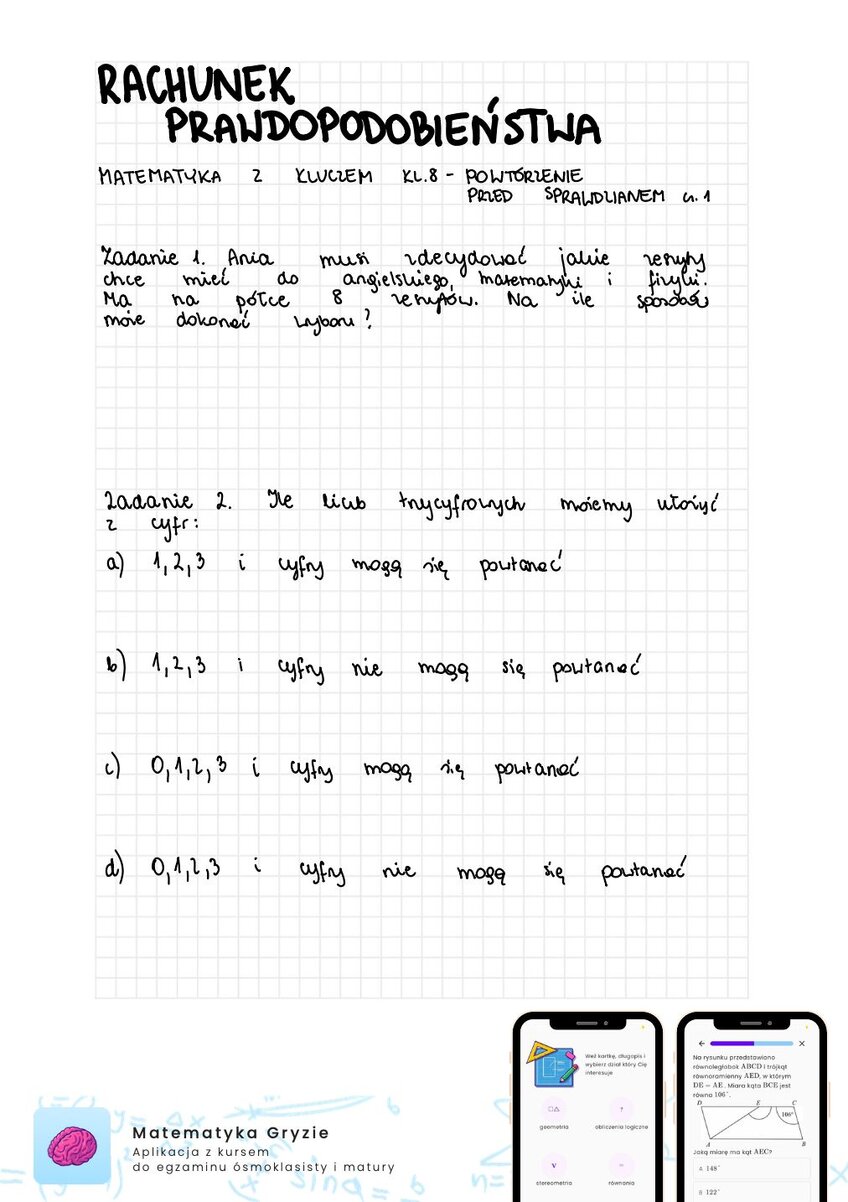 RACHUNEK
PRAWDOPODOBIEŃSTWA
MATEMATYKA Z KLUCZEM KL.8 - POWTÓRZENIE
PRZED SPRAWDZIANEM cz. 1
Zadanie 1. Ania musi zdecydować jakie zeszyty
chce mieć do angielskiego, matematyki i fizyki.
Ma na półce 8 zeszytów. Na ile sposobów
może dokonać wyboru?
Zadanie 2. Ile liczb trzycyfrowych możemy ułożyć
z cyfr:
a) 1, 2, 3 i cyfry mogą się powtarzać
b) 1, 2, 3 i cyfry nie mogą się powtarzać
c) 0, 1, 2, 3 i cyfry mogą się powtarzać
d) 0, 1, 2, 3 i cyfry nie mogą się powtarzać
Matematyka Gryzie
Aplikacja z kursem
do egzaminu ósmoklasisty i matury
Weź kartkę, długopis i
wybierz dział który Cię
interesuje
geometria
obliczenia logiczne
stereometria
równania
Na rysunku przedstawiono
równoległobok ABCD i trójkąt
równoramienny AED, w którym
DE = AE. Miara kąta BCE jest
równa 106°.
D E C
106°
A B
Jaką miarę ma kąt AEC?
A 148°
B 122°